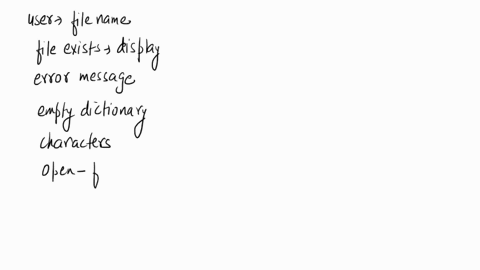 user → file name
file exists → display
error message
empty dictionary
characters
open - f